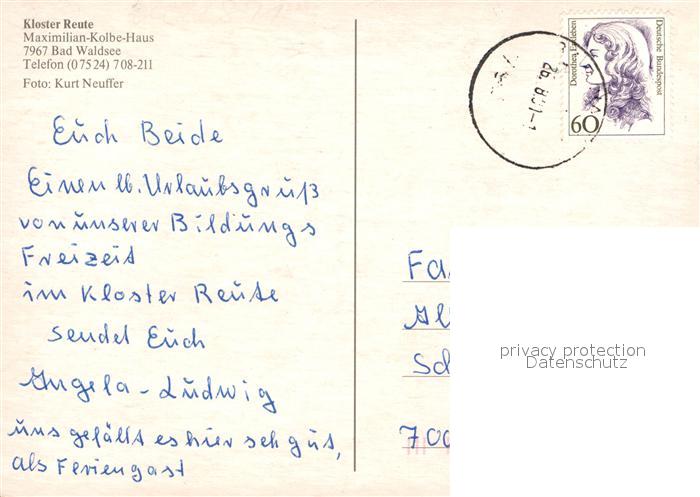 Kloster Reute
Maximilian-Kolbe-Haus
7967 Bad Waldsee
Telefon (07524) 708-211
Foto: Kurt Neuffer
Euch Beide
Einen lb. Urlaubsgruß
von unserer Bildungs
Freizeit
im Kloster Reute
sendet Euch
Angela - Ludwig
uns gefällt es hier seh gut,
als Feriengast
Deutsche Bundespost
Dorothea Erxleben
60
Fa
Sch
700
privacy protection
Datenschutz